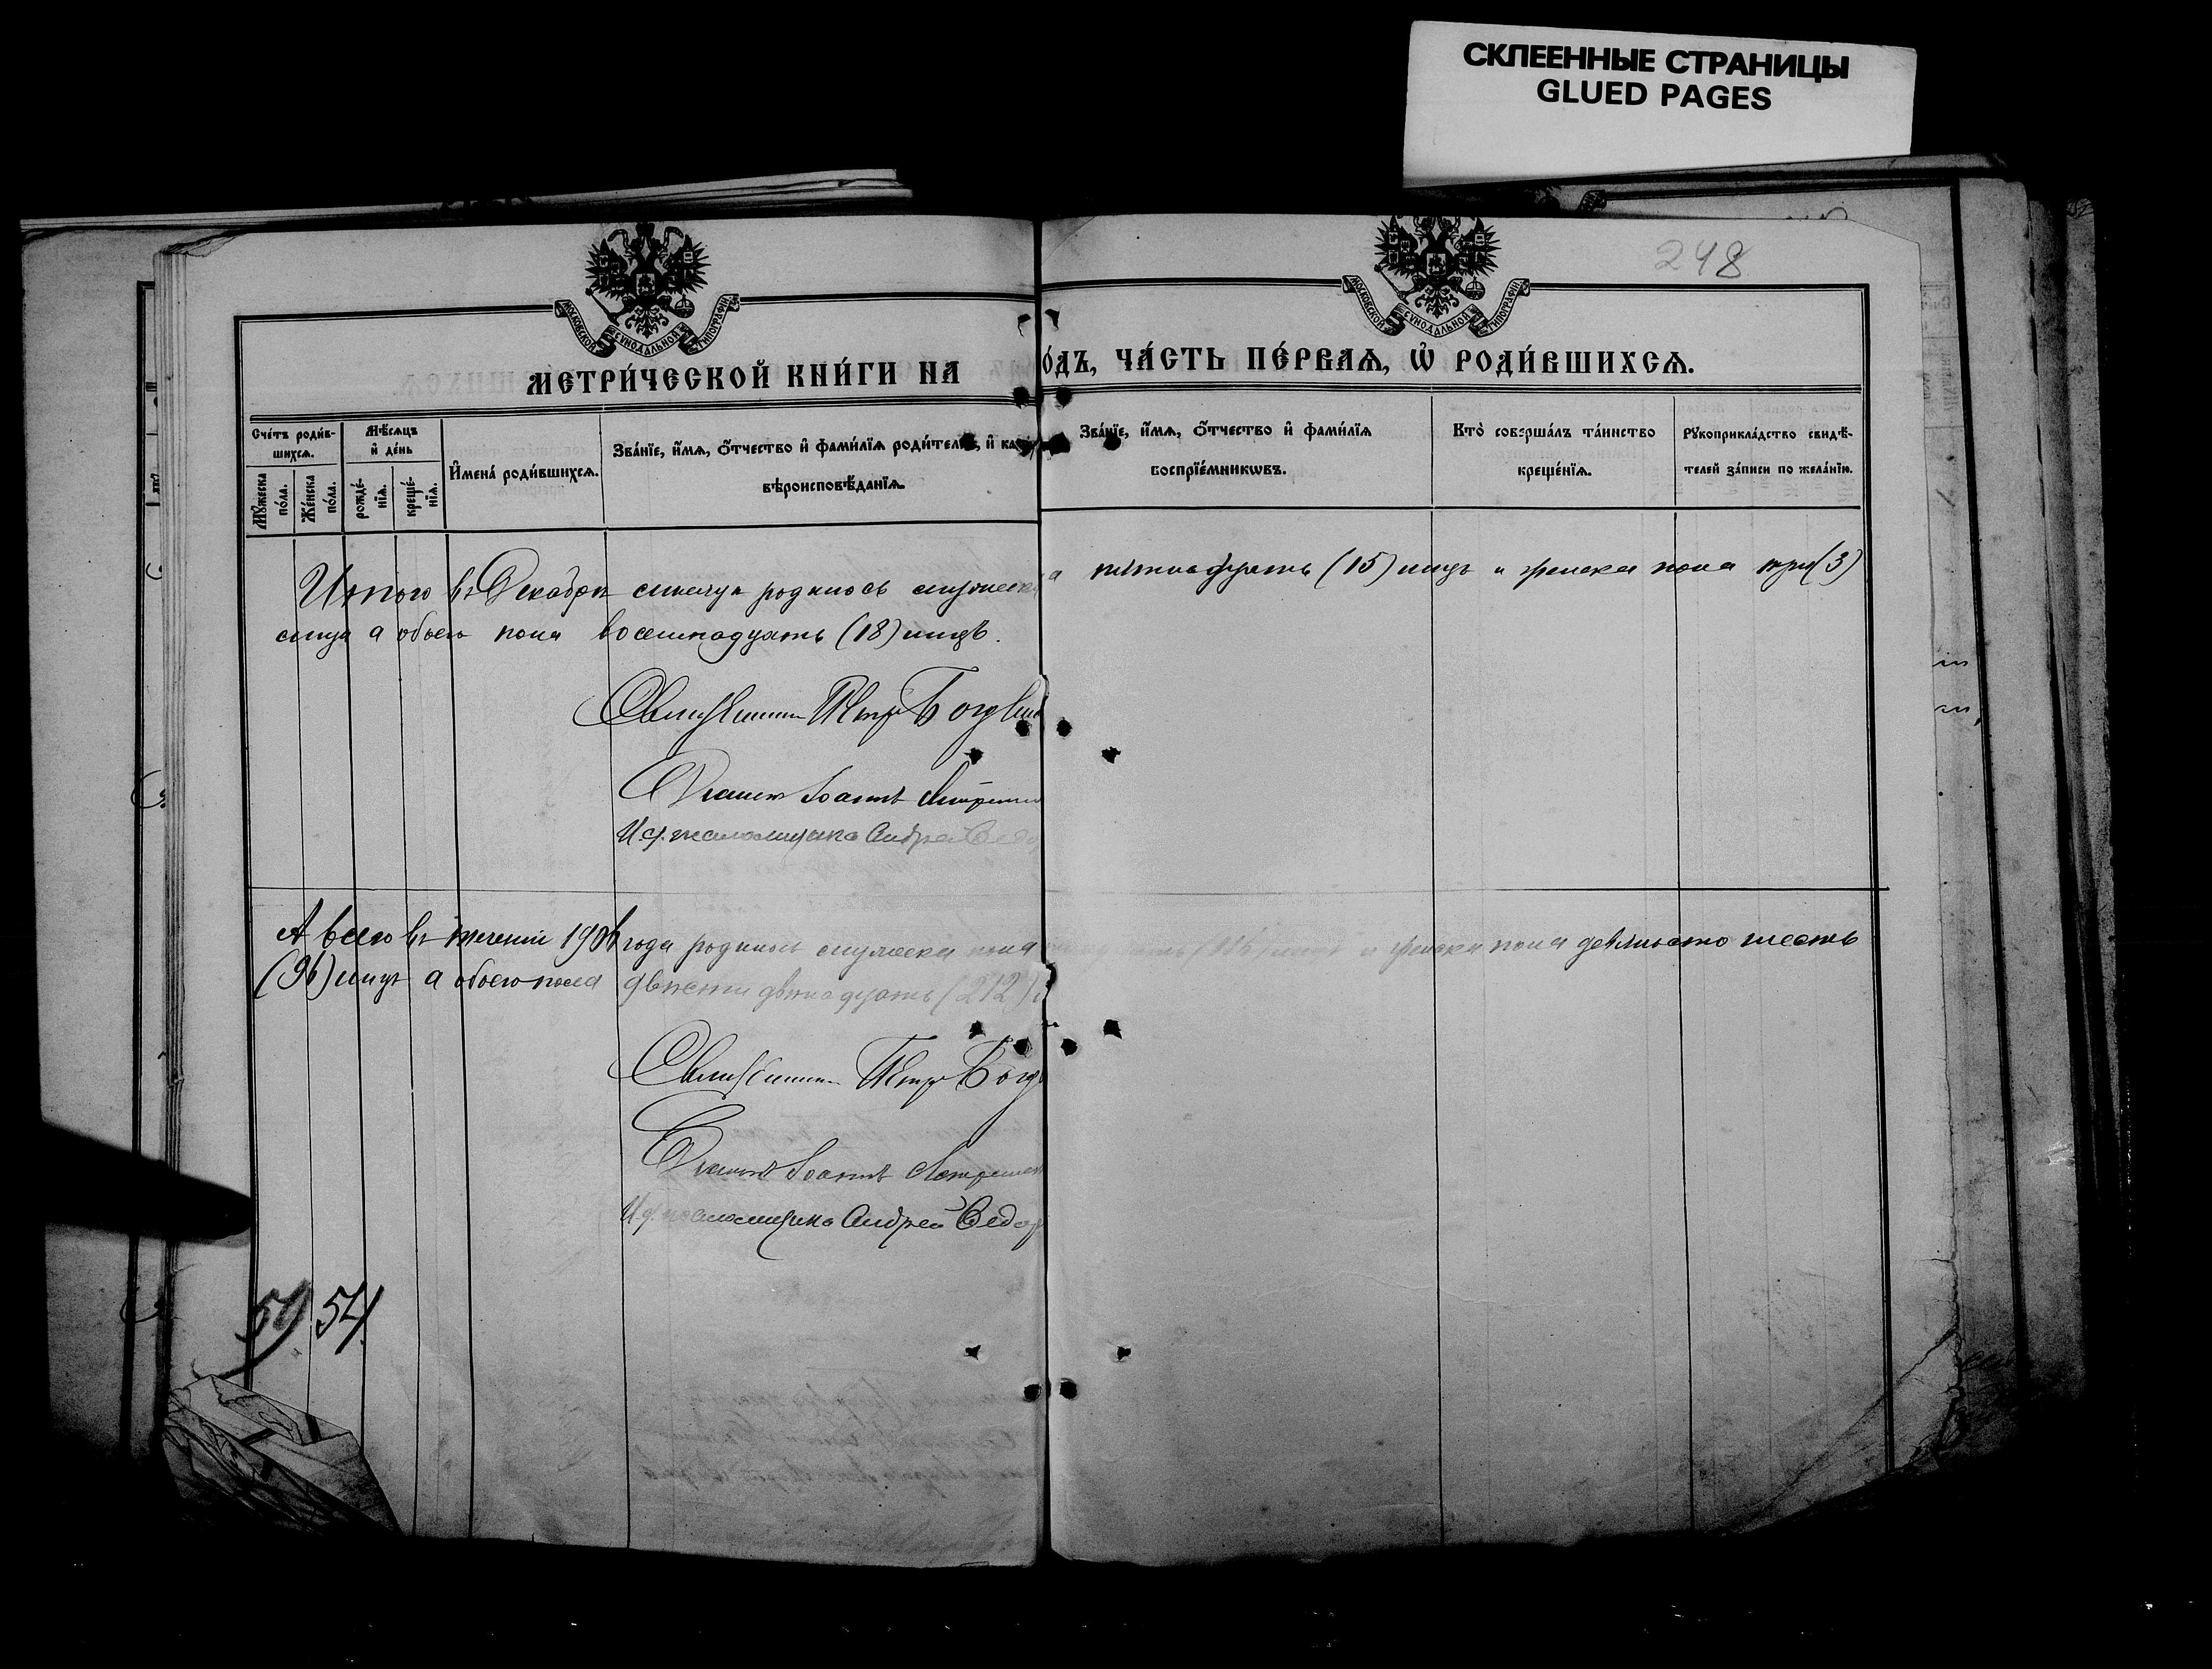 СКЛЕЕННЫЕ СТРАНИЦЫ
GLUED PAGES
248
МОСКОВСКОЙ СѴНОДАЛЬНОЙ ТИПОГРАФІИ
МОСКОВСКОЙ СѴНОДАЛЬНОЙ ТИПОГРАФІИ
МЕТРИ́ЧЕСКОЙ КНИ́ГИ НА
О́ДЪ, ЧА́СТЬ ПЕ́РВАѦ, Ѽ РОДИ́ВШИХСѦ.
Сче́тъ роди́в-
шихсѧ.
Мꙋ́жеска по́ла.
Же́нска по́ла.
Мѣ́сѧцъ и҆ де́нь
рожде́-нїѧ.
креще́-нїѧ.
И҆мена̀ роди́вшихсѧ.
Зва́нїе, и҆́мѧ, ѻ҆́тчество и҆ фами́лїѧ роди́телей, и҆ ка
вѣроисповѣ́данїѧ.
Зва́нїе, и҆́мѧ, ѻ҆́тчество и҆ фами́лїѧ
воспрїе́мникѡвъ.
Кто̀ соверша́лъ та́инство
креще́нїѧ.
Рꙋкоприкла́дство свидѣ́-
телей за́писи по жела́нїю.
Итого въ Декабрѣ родилось мужеска пятнадцать (15) лицъ и женска пола три (3)
лица а обоего пола восемнадцать (18) лицъ.
Священникъ Петръ Богд
Діаконъ Іоаннъ
И.д. псаломщика Андрей Ѳедо
А всего въ теченіи 1906 года родилось мужеска пола лицъ и женска пола девяносто шесть
(96) лицъ а обоего пола двѣсти двѣнадцать (212)
Священникъ Петръ Богд
Діаконъ Іоаннъ
И.д. псаломщика Андрей Ѳедор
59 54